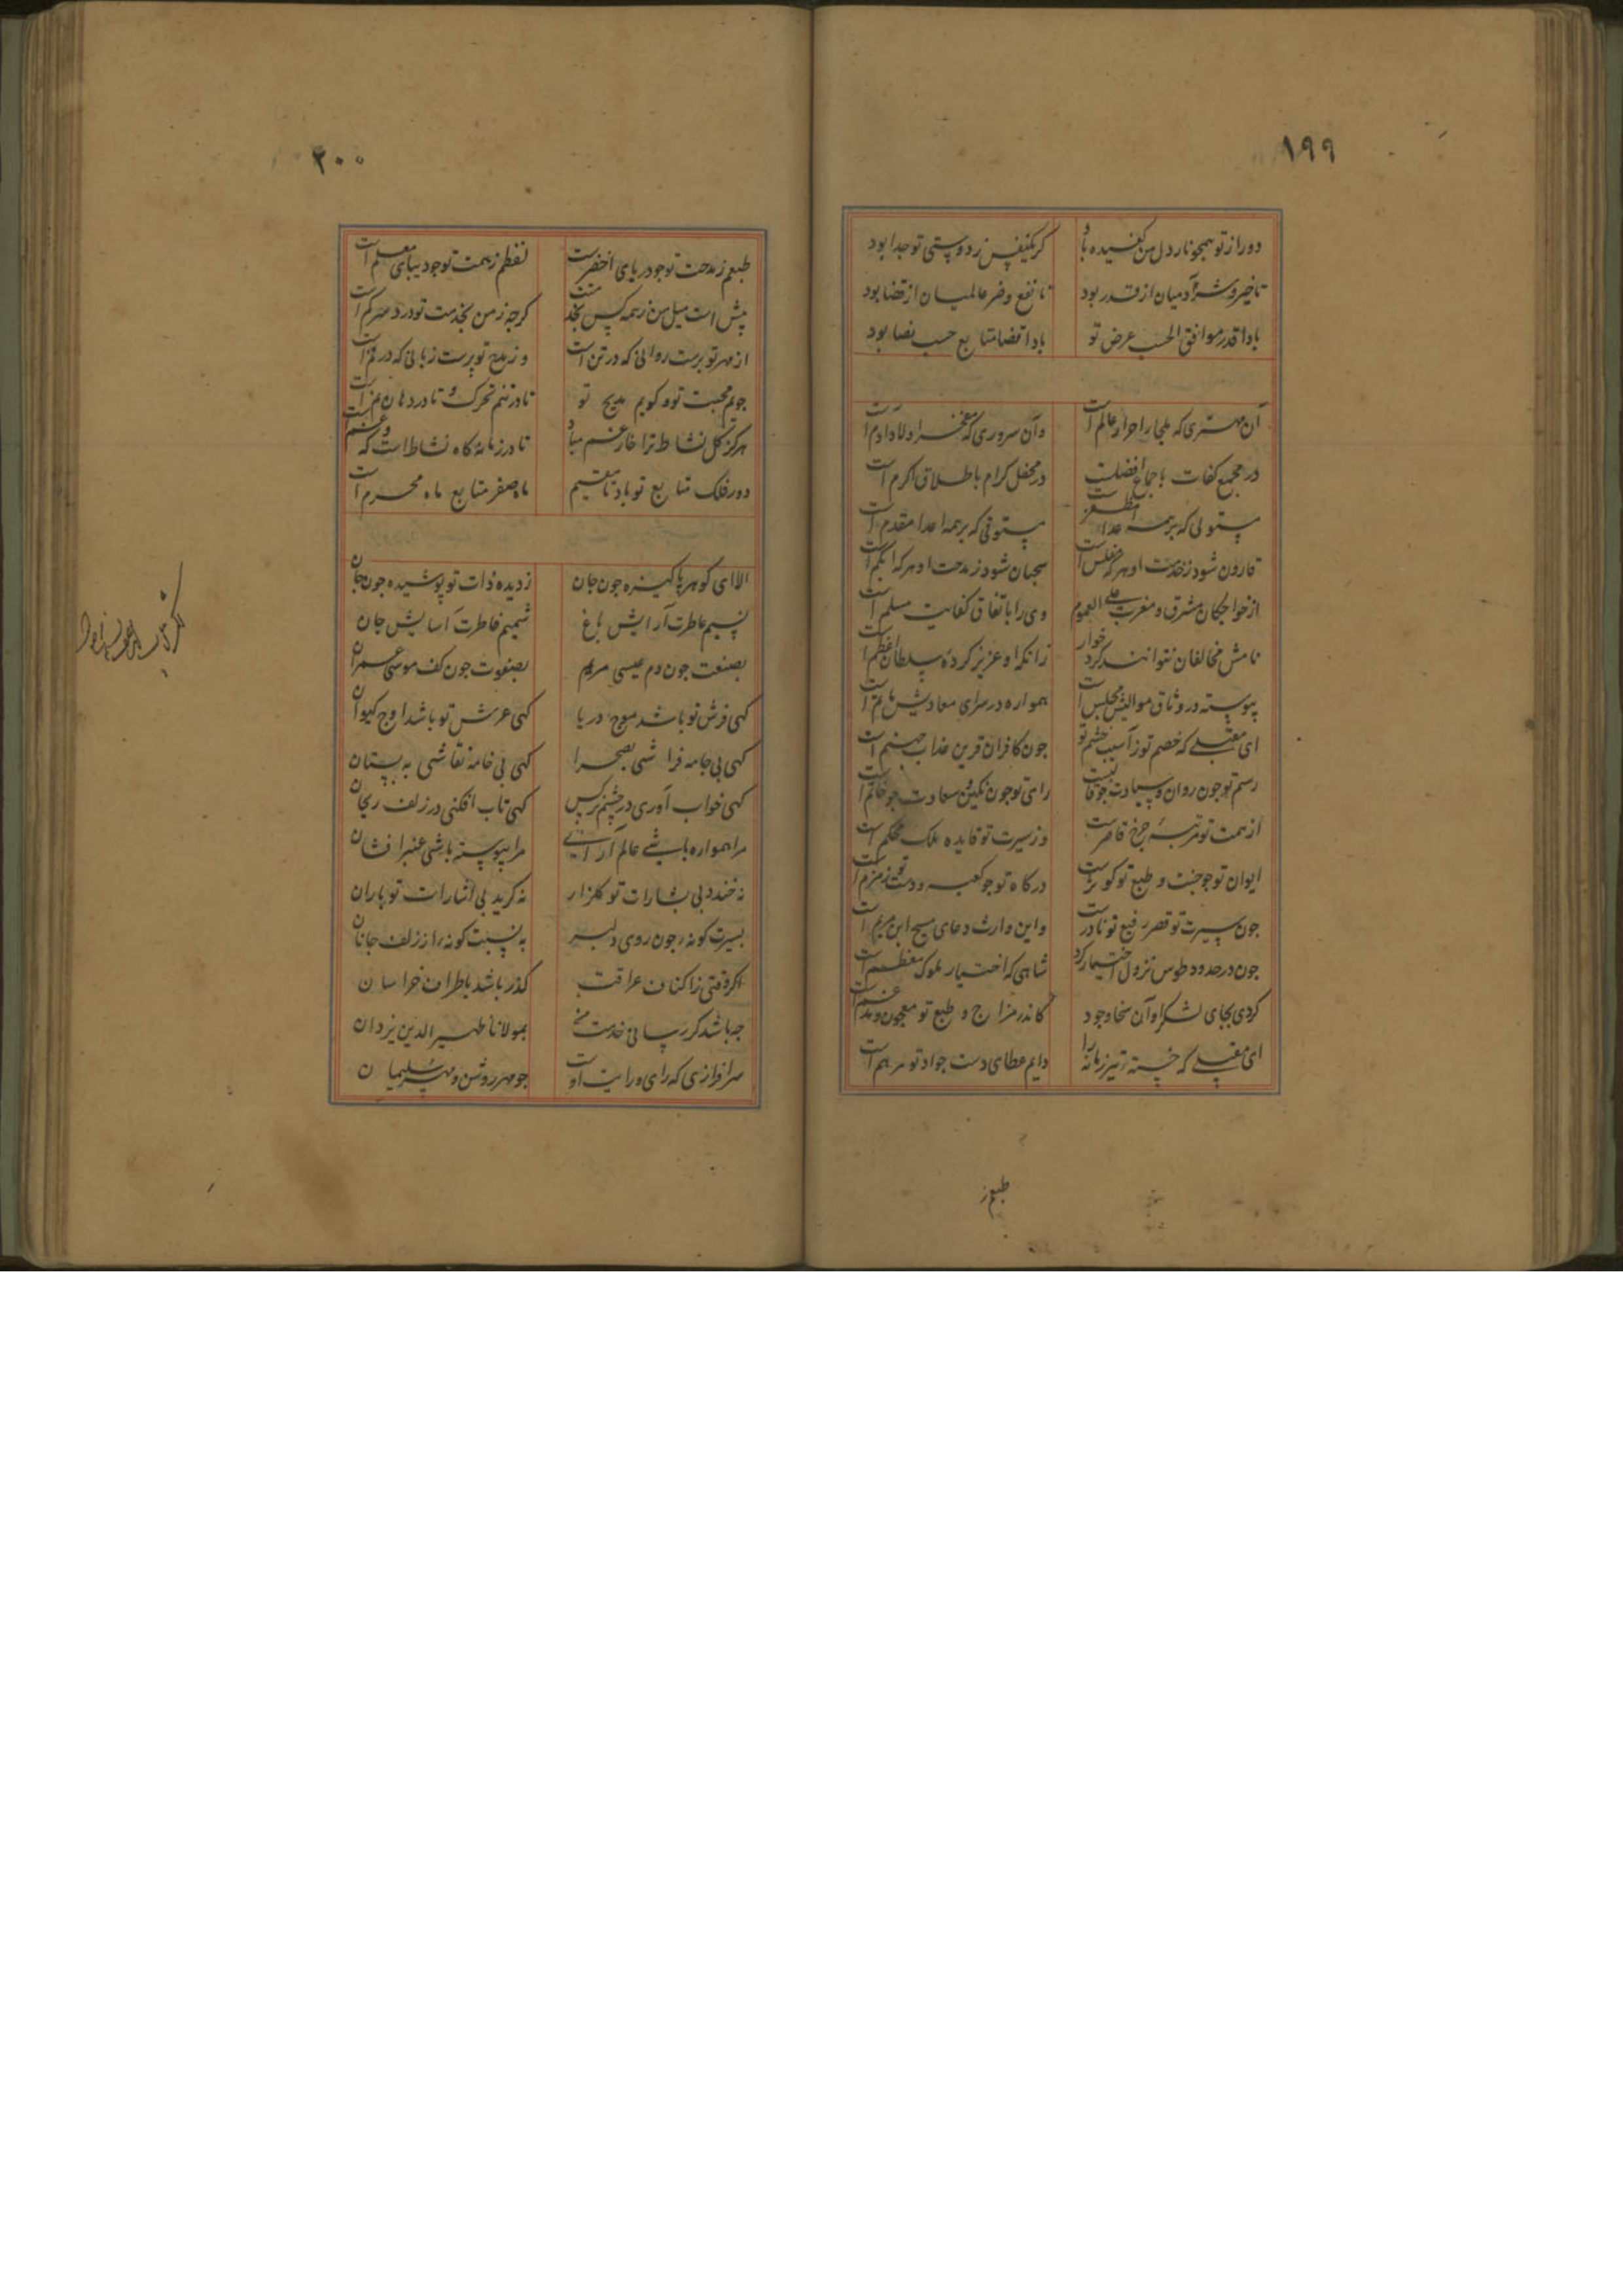 ۱۹۹
دور از تو همچو نار دل من کفیده باد کر یکنفس ز دوستی تو جدا بود
تا خیر و شر آدمیان از قدر بود تا نفع و ضر عالمیان از قضا بود
بادا قدر موافق الحسب عرض تو بادا قضا متابع حسب بضا بود
آن مهتری که ملجاء احرار عالم است وآن سروری که مفخر اولاد ادم است
در مجمع کفات باجماع افضلست در محفل کرام باطلاق اکرم است
مستولی که بر همه اعدا مظفر است مستوفی که بر همه اعدا مقدم است
قارون شود ز خدمت او هر که مفلس است سحبان شود ز مدحت او هر که ابکم است
از خواجکان مشرق و مغرب علی العموم وی را باتفاق کفایت مسلم است
نامش مخالفان نتوانند کرد خوار زانکه او عزیز کرده سلطان اعظم است
پیوسته در وثاق موالیش مجلس است همواره در سرای معادیش ماتم است
ای مقبلی که خصم تو ز آسیب خشم تو جون کافران قرین عذاب جهنم است
رای تو جون نکین سعادت جو خاتم است
از همت تو مرتبه جرخ قاصرست وز سیرت تو قاعده ملک محکم است
ایوان تو جو جنت و طبع تو کوثرست درکاه تو جو کعبه و دست تو زمزم است
جون سیرت تو قصر رفیع تو نادرست واین وارث دعای مسیح ابن مریم است
جون در حدود طوس نزول اختیار کرد شاهی که اختیار ملوک معظم است
کردی بجای لشکر او آن سخا و جود کاندر مزاج و طبع تو معجون و مدغم است
ای مقبلی که خسته تیر زمانه را دایم عطای دست جواد تو مرهم است
طبعم ز
۲۰۰
طبعم ز مدحت تو جو دریای اخضرست لفظم ز همت تو جو دیبای معلم است
بیش است میل من ز همه کس بخدمتت کرجه ز من بخدمت تو درد سر کم است
از مهر تو برست روانی که در تن است وز مدح تو پرست زبانی که در فم است
جویم محبت تو و کویم مدیح تو تا در تنم تحرک و تا در دهان دم است
هرکز کل نشاط ترا خار غم مباد تا در زمانه کاه نشاط است و که غم است
دور فلک متابع تو باد تا مقیم ماه صفر متابع ماه محرم است
الا ای کوهر پاکیزه جون جان ز دیده ذات تو پوشیده جون جان
نسیم عاطرت آرایش باغ شمیم فاطرت آسایش جان
بصنعت جون دم عیسی مریم بصفوت جون کف موسی عمران
کهی فرش تو باشد موج دریا کهی عرش تو باشد اوج کیوان
کهی بی جامه فراشی بصحرا کهی بی خامه نقاشی به بستان
کهی خواب آوری در چشم نرکس کهی تاب افکنی در زلف ریحان
مرا همواره باشی عالم آرای مرا پیوسته باشی عنبر افشان
نه خندد بی بشارات تو کلزار نه کرید بی اشارات تو باران
بسیرت کونه جون روی دلبر به نسبت کونه از زلف جانان
اکر وقتی ز اکناف عراقت کذر باشد باطراف خراسان
جه باشد کر رسانی خدمت من بمولانا ظهیر الدین یزدان
سرافرازی که رای و رایت او جو مهر روشن و مهر سلیمان